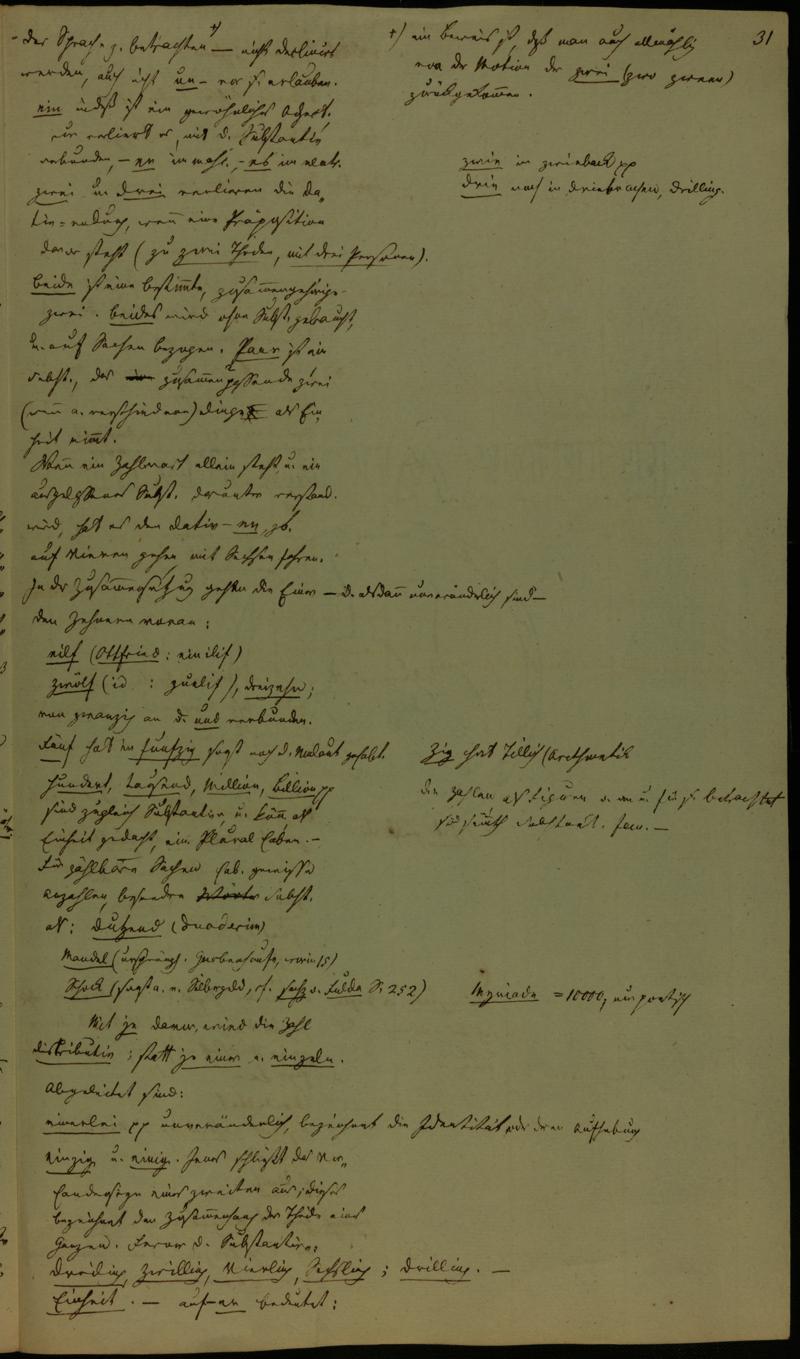 der Sprache z. betrachten +) — nicht declinirt
werden, auch nicht un- vor s. erlauben.
ein indeß ist ein gewöhnliches Adject.
nur verliert es, mit d. Substantiv
verbunden, -er im masc., -es im neutr.
zwei u. drei verlieren die Da-
tiv-endung, wenn eine Präposition
davor steht (zu zwei Theilen, mit drei Personen).
beide ist eine bestimmte, zusammengehörige
zwei. beides wird ohne Subst. gebraucht,
u. auf Sachen bezogen. Paar ist ein
Subst., das zusammenpassende zwei
(wenn a. verschiedene) Dinge als Ein-
heit nimmt.
Wenn ein Zahlwort allein steht u. ein
ausgelassenes Subst. darunter verstand.
wird, hat es den Dativ -en, zb.
auf Vieren gehen mit Sechsen fahren.
In der Zusammensetzung gehen die Einer — d. alsdann unveränderlich sind —
den Zehnern voran:
eilf (Ottfried: einilif)
zwölf (id: zuelif), dreizehn;
von zwanzig an d. und verbunden.
Fünf hat in funfzig sogst noch d. Umlaut gehabt.
Hundert, Tausend, Million, Billion pp
sind zugleich Substantive u. könn. als
Einheit gedacht, ein. Plural haben. —
Für zählbare Sachen hab. gewisse
Anzahlen besondre Subst.
als: Dutzend (Duodecim)
Mandel (ursprüngl. Garbenhaufe, von 15)
Schock (sagt a. v. Silbergeld, cf. Fulda S. 252)
Mit je davor, wird die Zahl
distributiv; statt je einer u. einzeln.
Abgeleitet sind:
einerlei pp unveränderlich, bezeichnet die Identität oder deren Aufhebung
einzig u. einig. Jenes schließt das Vor-
handenseyn eines zweiten aus; dieses
bezeichnet den Zusammenhang der Theile eines
Ganzen. Ferner d. Substantive:
Dreiling, Zwilling, Vierling, Sechsling; Drilling. —
Einheit. — auf -er bedeutet:
31
+) ein Beweis ist, daß man auch allmählig
von der Motion der zwei (zwo zween)
zurückgekommen.
zwie in zwieback pp
drie noch in driebrachen, Drilling.
zig hat Tillich (Arithmetik
die Zahlen als Figuren u. an u. für s. betrachtet
sind Substant. fem. —
Myriade = 10000, nur poetisch